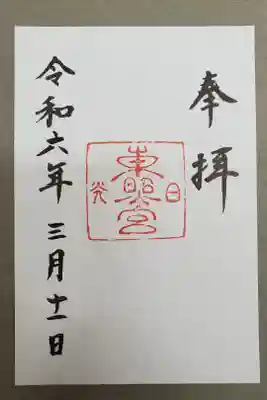 奉拝
日光
東照宮
令和六年三月十一日